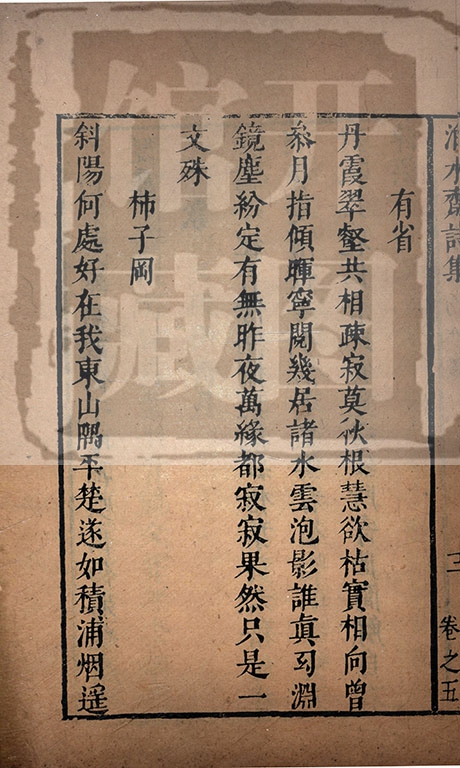 水齋詩集 三 卷之五
有省
丹霞翠壑共相疎寂莫秋根慧欲枯實相向曾
叅月指傾暉寧閱幾居諸水雲泡影誰眞幻淵
鏡塵紛定有無昨夜萬緣都寂寂果然只是一
文殊
柿子岡
斜陽何處好在我東山隅平楚遂如積浦烟遥